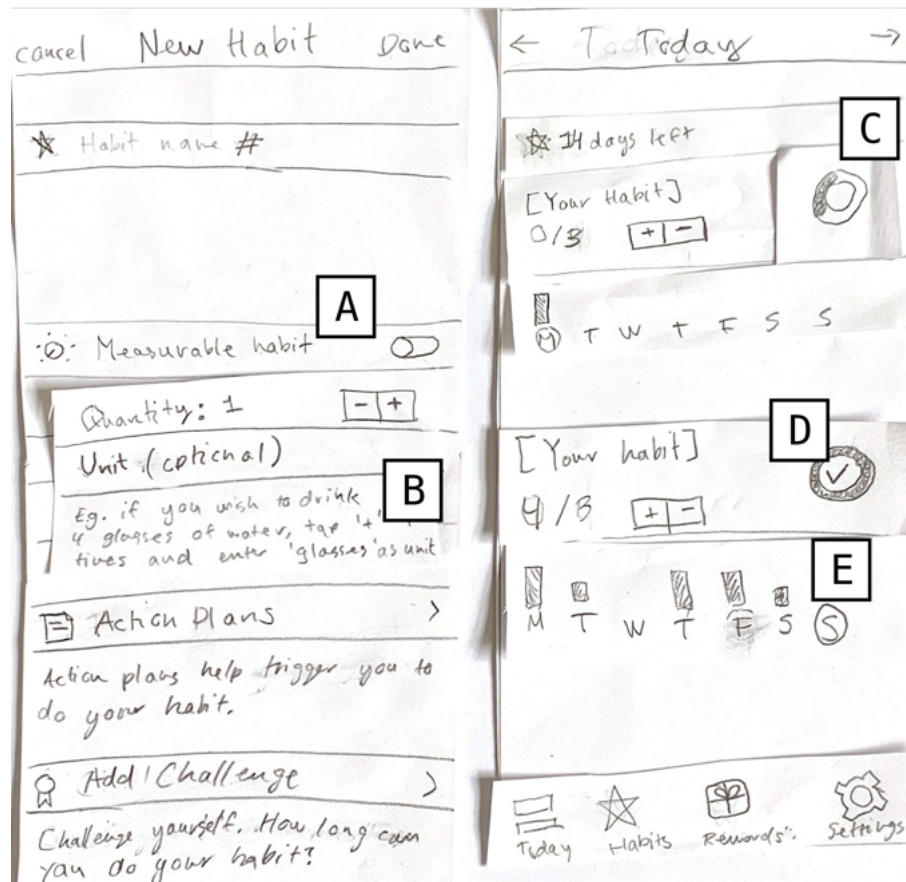 cancel New Habit Done
Habit name #
A
Measurable habit
Quantity: 1 - +
Unit (optional)
B
Eg. if you wish to drink
4 glasses of water, tap '+'
times and enter 'glasses' as unit
Action Plans >
Action plans help trigger you to
do your habit.
Add Challenge >
Challenge yourself. How long can
you do your habit?
← Today →
C
14 days left
[Your Habit]
0/3 + -
M T W T F S S
D
[Your habit]
/3 + -
E
M T W T F S S
Today Habits Rewards Settings